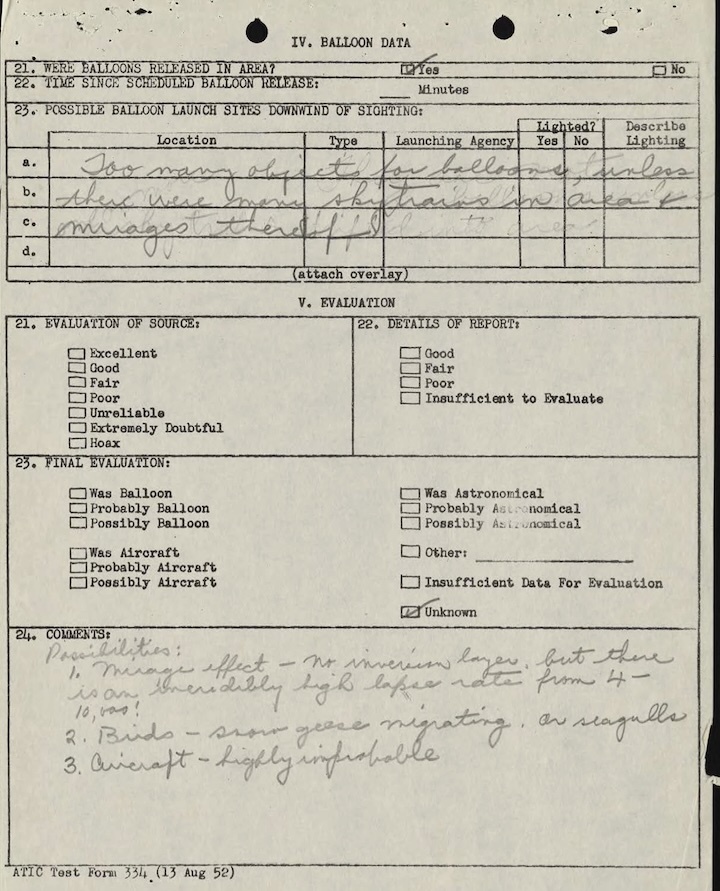 IV. BALLOON DATA
21. WERE BALLOONS RELEASED IN AREA? Yes No
22. TIME SINCE SCHEDULED BALLOON RELEASE: ____ Minutes
23. POSSIBLE BALLOON LAUNCH SITES DOWNWIND OF SIGHTING:
Lighted? Describe
Location Type Launching Agency Yes No Lighting
a. Too many objects for balloons, unless
b. there were many skytrains in area &
c. mirages thereof
d.
(attach overlay)
V. EVALUATION
21. EVALUATION OF SOURCE:
Excellent
Good
Fair
Poor
Unreliable
Extremely Doubtful
Hoax
22. DETAILS OF REPORT:
Good
Fair
Poor
Insufficient to Evaluate
23. FINAL EVALUATION:
Was Balloon
Probably Balloon
Possibly Balloon
Was Aircraft
Probably Aircraft
Possibly Aircraft
Was Astronomical
Probably Astronomical
Possibly Astronomical
Other: ____
Insufficient Data For Evaluation
Unknown
24. COMMENTS:
Possibilities:
1. Mirage effect - no inversion layer, but there
is an incredibly high lapse rate from 4-
10,000!
2. Birds - snow geese migrating, or seagulls
3. Aircraft - highly improbable
ATIC Test Form 334 (13 Aug 52)